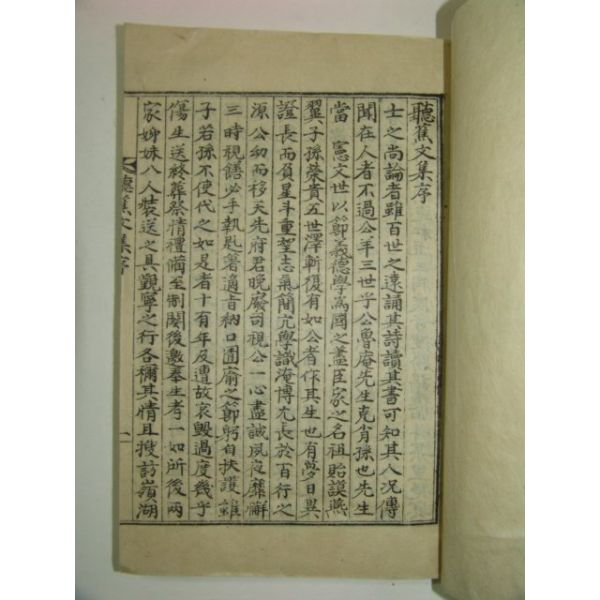 聽蕉文集序
士之尚論者雖百世之遠誦其詩讀其書可知其人況傳
聞在人者不過公年三世乎公魯庵先生克肖孫也先生
當 憲文世以節義德學爲國之藎臣家之名祖貽謨燕
翼子孫榮貴五世澤斬復有如公者作其生也有夢日異
證長而負星斗重望志氣簡亢學識淹博尤長於百行之
源公幼而移天先府君晩廢司視公一心盡誠夙夜靡懈
三時視饍必手執匙箸適旨納口圊廁之節躬自扶護雖
子若孫不使代之如是者十有年及遭故哀毁過度幾乎
傷生送終葬祭情禮備至制闋後邀墓生考一如所後兩
家姊妹八人裝送之具觀寧之行各稱其情且搜訪嶺湖
聽蕉文集序
一